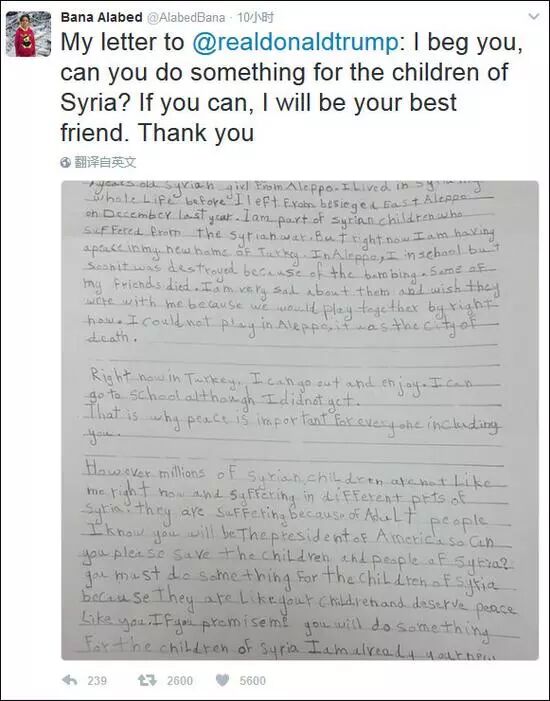 Bana Alabed @AlabedBana · 10小时
My letter to @realdonaldtrump: I beg you,
can you do something for the children of
Syria? If you can, I will be your best
friend. Thank you
翻译自英文
years old Syrian girl From Aleppo. I Lived in Syria
whole Life before I left From besieged East Aleppo
on December last year. I am part of syrian children who
suffered from the syrian war. But right now I am having
apeace in my new home of Turkey. In Aleppo, I in school but
soon it was destroyed because of the bombing. Some of
my friends died. I am very sad about them and wish they
were with me because we would play together by right
now. I could not play in Aleppo, it was the city of
death.
Right now in Turkey, I can go out and enjoy. I can
go to school although I didnot yet.
That is why peace is important for everyone including
you.
However millions of syrian children are not like
me right now and suffering in different prts of
syria. they are suffering because of AduLt people
I know you will be The president of America so can
you please save the children and people of Syria?
you must do something For the children of syria
because They are Like your children and deserve peace
Like you. If you promise me you will do something
For the children of Syria I am already your new
239 2600 5600